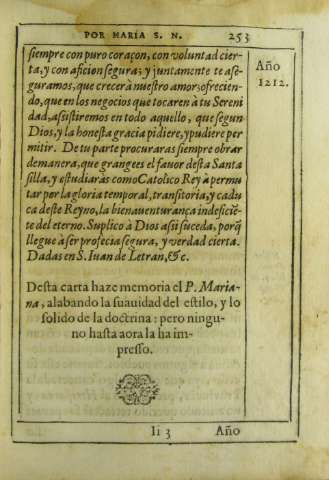 POR MARIA S. N. 253
siempre con puro coraçon, con voluntad cier-
ta, y con aficion segura; y juntamente te ase-
guramos, que crecerà nuestro amor; ofrecien-
do, que en los negocios que tocaren à tu Sereni
dad, assistiremos en todo aquello, que segun
Dios, y la honesta gracia pidiere, y pudiere per
mitir. De tu parte procuraras siempre obrar
de manera, que grangees el fauor desta Santa
silla, y estudiaràs como Catolico Rey à permu
tar por la gloria temporal, transitoria, y cadu
ca deste Reyno, la bienauenturança indeficiẽ
te del eterno. Suplico à Dios assi suceda, porq̃
llegue à ser profecia segura, y verdad cierta.
Dadas en S. Iuan de Letran, &c.
Año
1212.
Desta carta haze memoria el P. Maria-
na, alabando la suauidad del estilo, y lo
solido de la doctrina: pero ningu-
no hasta aora la ha im-
presso.
Ii 3 Año